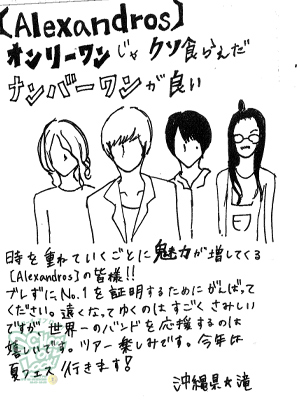 [Alexandros]
オンリーワンじゃクソ食らえだ
ナンバーワンが良い
時を重ねていくごとに魅力が増してくる
[Alexandros]の皆様!!
ブレずにNo.1を証明するためにがんばって
ください。遠くなってゆくのはすごくさみしい
ですが世界一のバンドを応援するのは
嬉しいです。ツアー楽しみです。今年は
夏フェス行きます!
沖縄県★滝